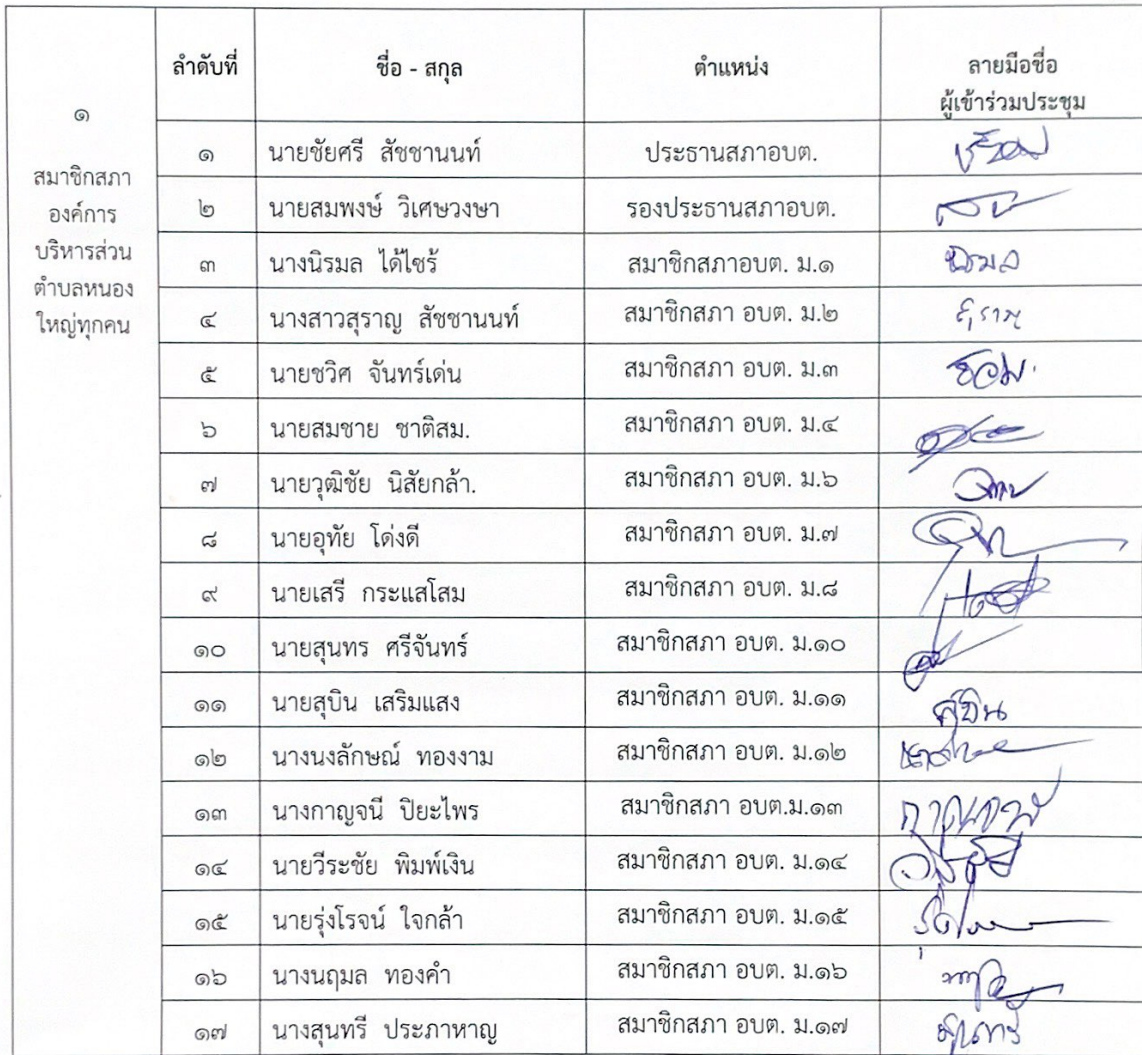 ๑
สมาชิกสภา
องค์การ
บริหารส่วน
ตำบลหนอง
ใหญ่ทุกคน
ลำดับที่ ชื่อ - สกุล ตำแหน่ง ลายมือชื่อ
ผู้เข้าร่วมประชุม
๑ นายชัยศรี สัชชานนท์ ประธานสภาอบต.
๒ นายสมพงษ์ วิเศษวงษา รองประธานสภาอบต.
๓ นางนิรมล ได้ไซร้ สมาชิกสภาอบต. ม.๑ นิรมล
๔ นางสาวสุราญ สัชชานนท์ สมาชิกสภา อบต. ม.๒ สุราญ
๕ นายชวิศ จันทร์เด่น สมาชิกสภา อบต. ม.๓
๖ นายสมชาย ชาติสม. สมาชิกสภา อบต. ม.๔
๗ นายวุฒิชัย นิสัยกล้า. สมาชิกสภา อบต. ม.๖
๘ นายอุทัย โด่งดี สมาชิกสภา อบต. ม.๗
๙ นายเสรี กระแสโสม สมาชิกสภา อบต. ม.๘
๑๐ นายสุนทร ศรีจันทร์ สมาชิกสภา อบต. ม.๑๐
๑๑ นายสุบิน เสริมแสง สมาชิกสภา อบต. ม.๑๑ สุบิน
๑๒ นางนงลักษณ์ ทองงาม สมาชิกสภา อบต. ม.๑๒
๑๓ นางกาญจนี ปิยะไพร สมาชิกสภา อบต.ม.๑๓ กาญจนี
๑๔ นายวีระชัย พิมพ์เงิน สมาชิกสภา อบต. ม.๑๔
๑๕ นายรุ่งโรจน์ ใจกล้า สมาชิกสภา อบต. ม.๑๕
๑๖ นางนฤมล ทองคำ สมาชิกสภา อบต. ม.๑๖
๑๗ นางสุนทรี ประภาหาญ สมาชิกสภา อบต. ม.๑๗ สุนทรี